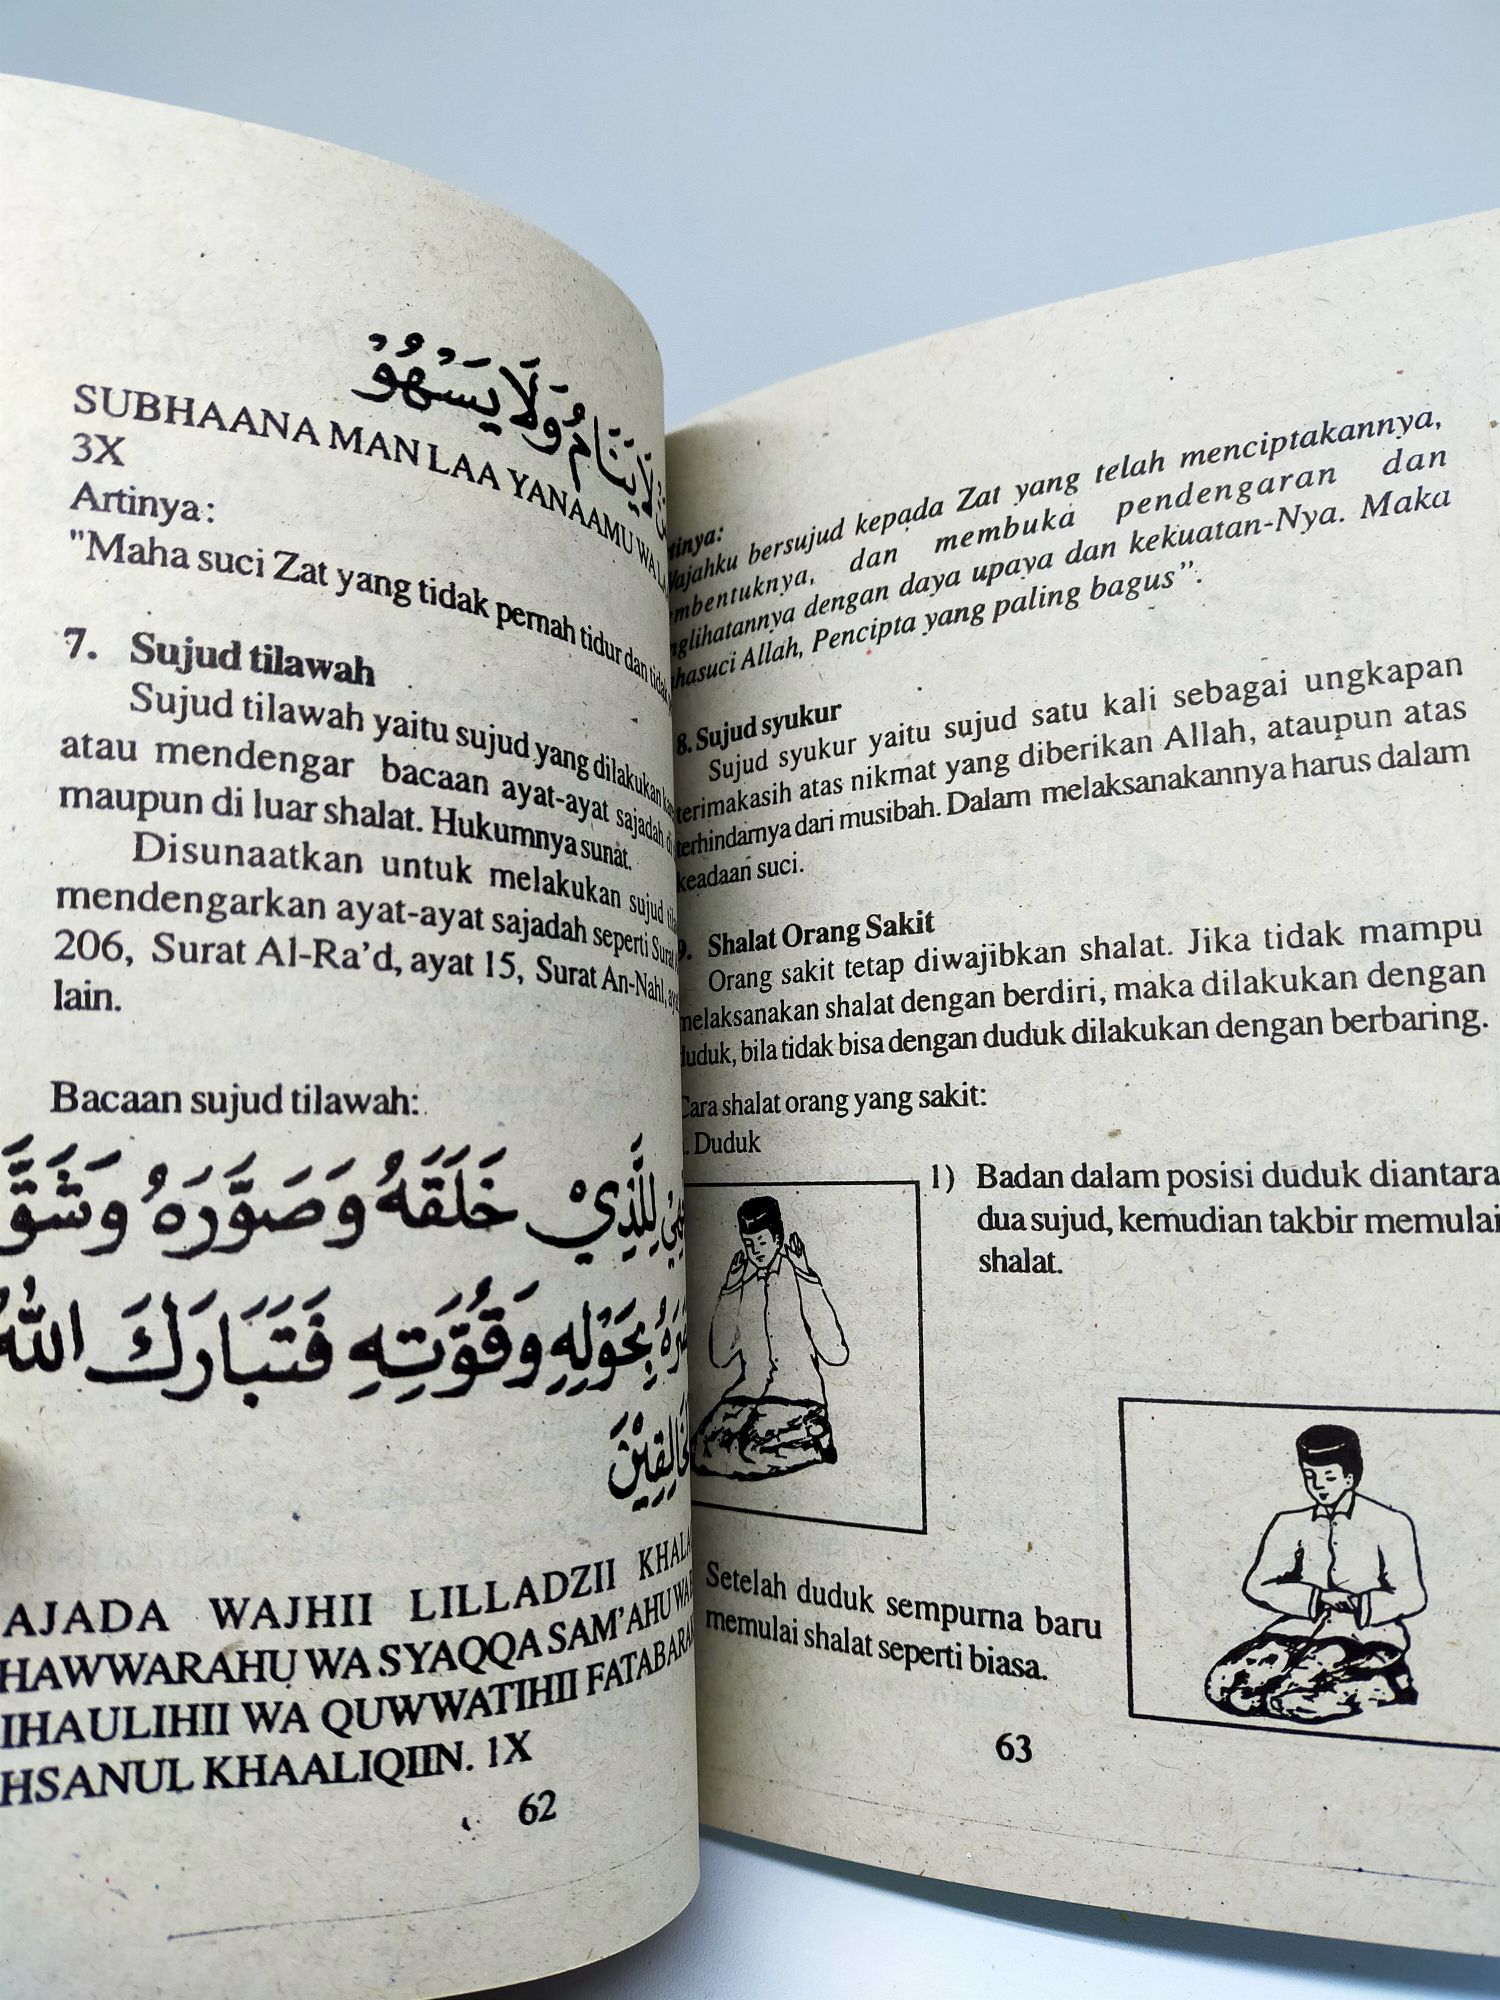 لَا يَنَامُ وَلَا يَسْهُوْ
SUBHAANA MAN LAA YANAAMU WA LA
3X
Artinya:
"Maha suci Zat yang tidak pernah tidur dan tidak
7. Sujud tilawah
Sujud tilawah yaitu sujud yang dilakukan
atau mendengar bacaan ayat-ayat sajadah di
maupun di luar shalat. Hukumnya sunat.
Disunaatkan untuk melakukan sujud
mendengarkan ayat-ayat sajadah seperti Surat
206, Surat Al-Ra'd, ayat 15, Surat An-Nahl,
lain.
Bacaan sujud tilawah:
لِلَّذِيْ خَلَقَهُ وَصَوَّرَهُ وَشَقَّ
بِحَوْلِهِ وَقُوَّتِهِ فَتَبَارَكَ اللهُ
الْخَالِقِيْنَ
AJADA WAJHII LILLADZII KHALA
HAWWARAHU WA SYAQQA SAM'AHU WA
IHAULIHII WA QUWWATIHII FATABARA
HSANUL KHAALIQIIN. 1X
62
tinya:
Wajahku bersujud kepada Zat yang telah menciptakannya,
mbentuknya, dan membuka pendengaran dan
nglihatannya dengan daya upaya dan kekuatan-Nya. Maka
hasuci Allah, Pencipta yang paling bagus".
8. Sujud syukur
Sujud syukur yaitu sujud satu kali sebagai ungkapan
terimakasih atas nikmat yang diberikan Allah, ataupun atas
terhindarnya dari musibah. Dalam melaksanakannya harus dalam
keadaan suci.
9. Shalat Orang Sakit
Orang sakit tetap diwajibkan shalat. Jika tidak mampu
melaksanakan shalat dengan berdiri, maka dilakukan dengan
duduk, bila tidak bisa dengan duduk dilakukan dengan berbaring.
Cara shalat orang yang sakit:
. Duduk
1) Badan dalam posisi duduk diantara
dua sujud, kemudian takbir memulai
shalat.
Setelah duduk sempurna baru
memulai shalat seperti biasa.
63